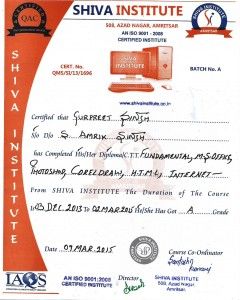 SHIVA INSTITUTE
508, AZAD NAGAR, AMRITSAR
AN ISO 9001 - 2008
CERTIFIED INSTITUTE
QAC
CERTIFICATE No.
QMS/SI/13/1696
BATCH No. A
www.shivainstitute.co.in
SHIVA INSTITUTE
Certified that GURPREET SINGH
S/o D/o S. AMRIK SINGH
has Completed His/Her Diploma/C.T.T. FUNDAMENTAL, M.S OFFICE,
PHOTOSHOP, CORELDRAW, H.T.M.L, INTERNET
From SHIVA INSTITUTE The Duration of the Course
is 03 DEC 2013 to 02 MAR 2015 He/She Has Got A Grade
Date 09 MAR. 2015
Course Co-Ordinator
Director
IAQS
AN ISO 9001:2008
CERTIFIED INSTITUTE
SHIVA INSTITUTE
508, Azad Nagar
Amritsar.